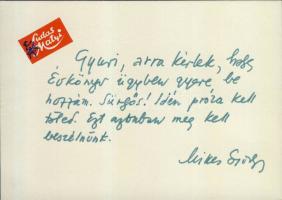 Ludas
Matyi
Gyuri, arra kérlek, hogy
Évkönyv ügyben gyere be
hozzám. Sürgős! Idén próza kell
tőled. Ezt azonban meg kell
beszélnünk.
Mikes György